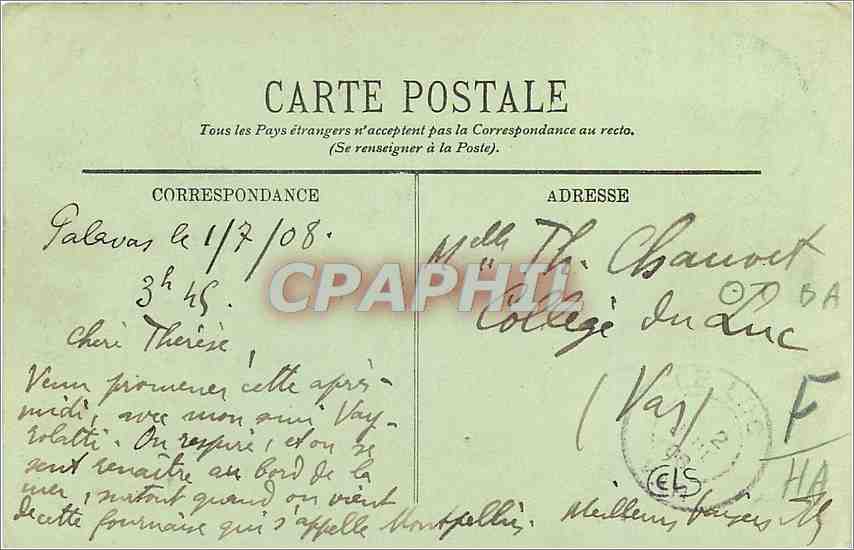 CARTE POSTALE
Tous les Pays étrangers n'acceptent pas la Correspondance au recto.
(Se renseigner à la Poste).
CORRESPONDANCE
Palavas le 1/7/08.
3h 45.
Chéri Thérèse,
Venu promener cette après-
midi, avec mon ami Vay-
rolatti. On respire, et on se
sent renaître au bord de la
mer, surtout quand on vient
de cette fournaise qui s'appelle Montpellier. Meilleurs baisers
ADRESSE
Melle Th. Chauvet
Collège du Luc
(Var)
CPAPHIL
CELS
F
HA